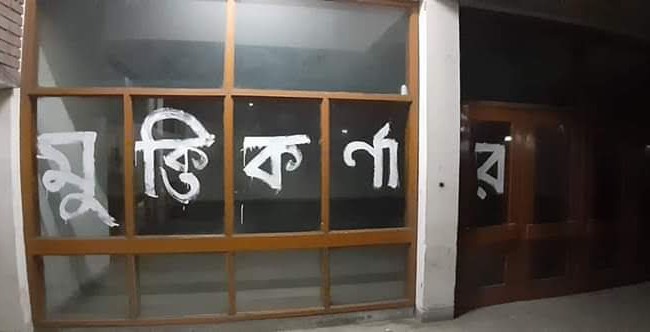 মুক্তি কর্ণার